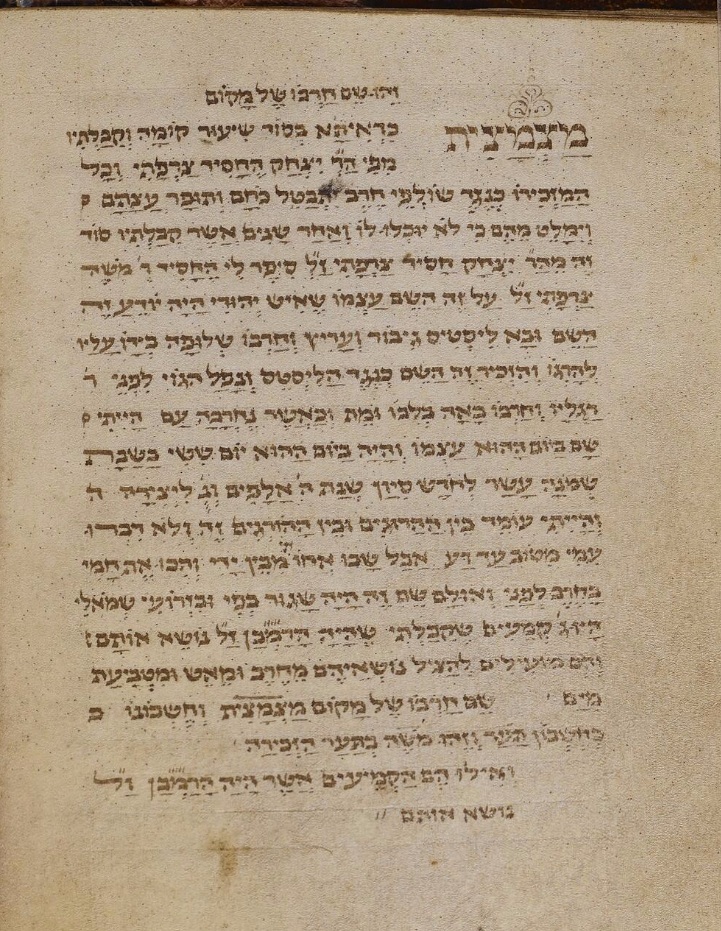 וזהו שם חרבו של מקום
מצמצית כדאיתא בסוד שיעור קומה וקבלתיו
מפי הר״ר יצחק החסיד צרפתי וכל
המזכירו כנגד שולפי חרב יתבטל כחם ותופר עצתם
וימלט מהם כי לא יוכלו לו ואחר שנים אשר קבלתיו סוד
זה מהר״ר יצחק חסיד צרפתי ז״ל סיפר לי החסיד ר׳ משה
צרפתי ז״ל על זה השם עצמו שאיש יהודי היה יודע זה
השם ובא ליסטיס גיבור ועריץ וחרבו שלופה בידו עליו
להרגו והזכיר זה השם כנגד הליסטס ונפל הגוי לפני ר
רגליו וחרבו באה בלבו ומת וכאשר נחרבה עם הייתי
שם ביום ההוא עצמו והיה ביום ההוא יום ששי בשבת
שמנה עשר לחדש סיון שנת ה׳ אלפים ליצירה ה
והייתי עומד בין ההרוגים ובין ההורגים ולא דברו
עמי מטוב עד רע אבל שבו אחותי מבין ידי והכו את חמי
בחרב לפני ואולם שם זה היה שגור בפי ובזרועי שמאלי
היו קמעים שקבלתי שהיה הרמב״ן ז״ל נושא אותם
והם מועילים להציל נושאיהם מחרב ומאש ומטביעת
מים שם חרבו של מקום מצמצית וחשבונו כ
כחשבון וזהו משה בתער הזכירה
ואילו הם הקמיעים אשר היה הרמב״ן ז״ל
נושא אותם